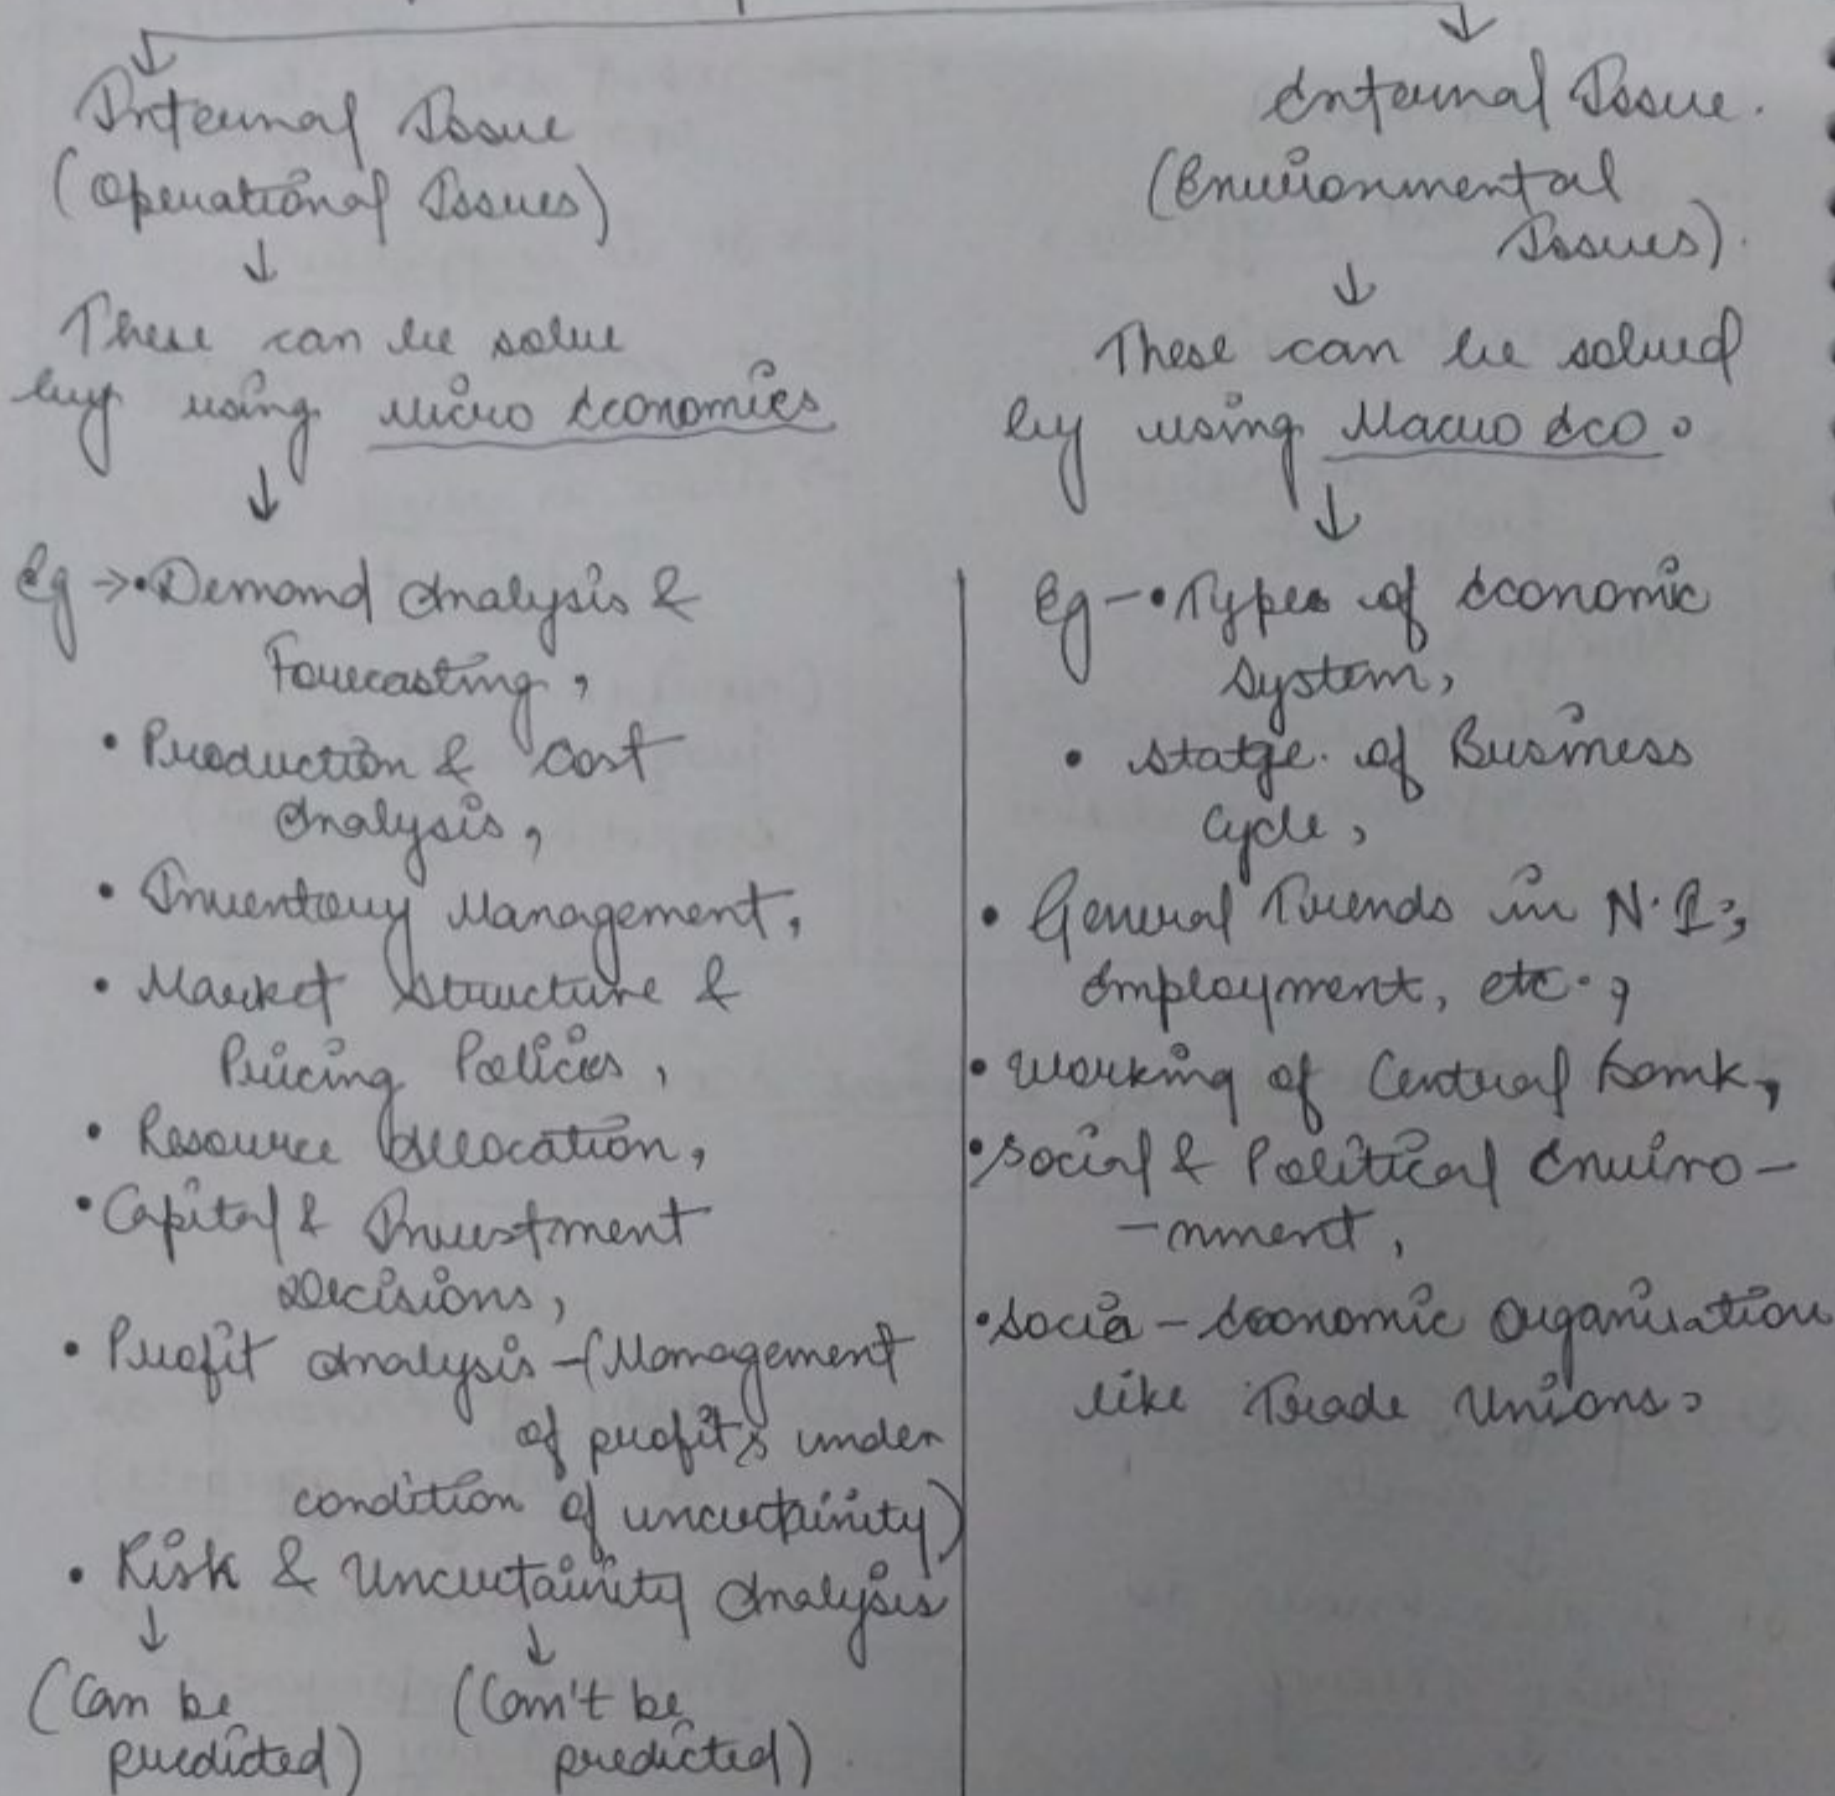 Internal Issue
(Operational Issues)
↓
These can be solve
by using Micro Economics
↓
Eg → • Demand Analysis &
Forecasting,
• Production & Cost
Analysis,
• Inventory Management,
• Market Structure &
Pricing Policies,
• Resource Allocation,
• Capital & Investment
Decisions,
• Profit Analysis - (Management
of profits under
condition of uncertainity)
• Risk & Uncertainity Analysis
↓ ↓
(Can be (Can't be
predicted) predicted)
External Issue.
(Environmental
Issues).
↓
These can be solved
by using Macro Eco.
↓
Eg - • Types of Economic
System,
• Statge of Business
Cycle,
• General Trends in N.I.,
Employment, etc.,
• Working of Central Bank,
• Social & Political Enviro-
-nment,
• Socio - Economic Organisation
like Trade Unions.